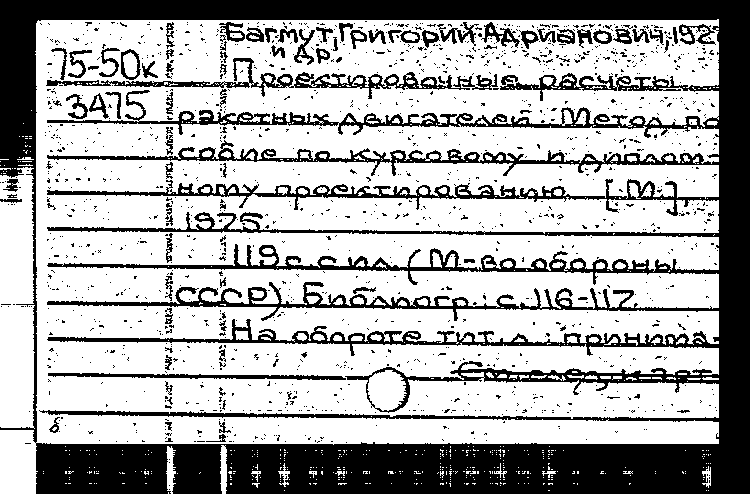 Багмут, Григорий Адрианович, 192
и др.
75-50к
Проектировочные расчеты
3475
ракетных двигателей. Метод. по
собие по курсовому и диплом-
ному проектированию. [М.],
1975.
119 с. с ил. (М-во обороны
СССР). Библиогр.: с. 116-117.
На обороте тит. л.: принима-
См. след. к-арт
б